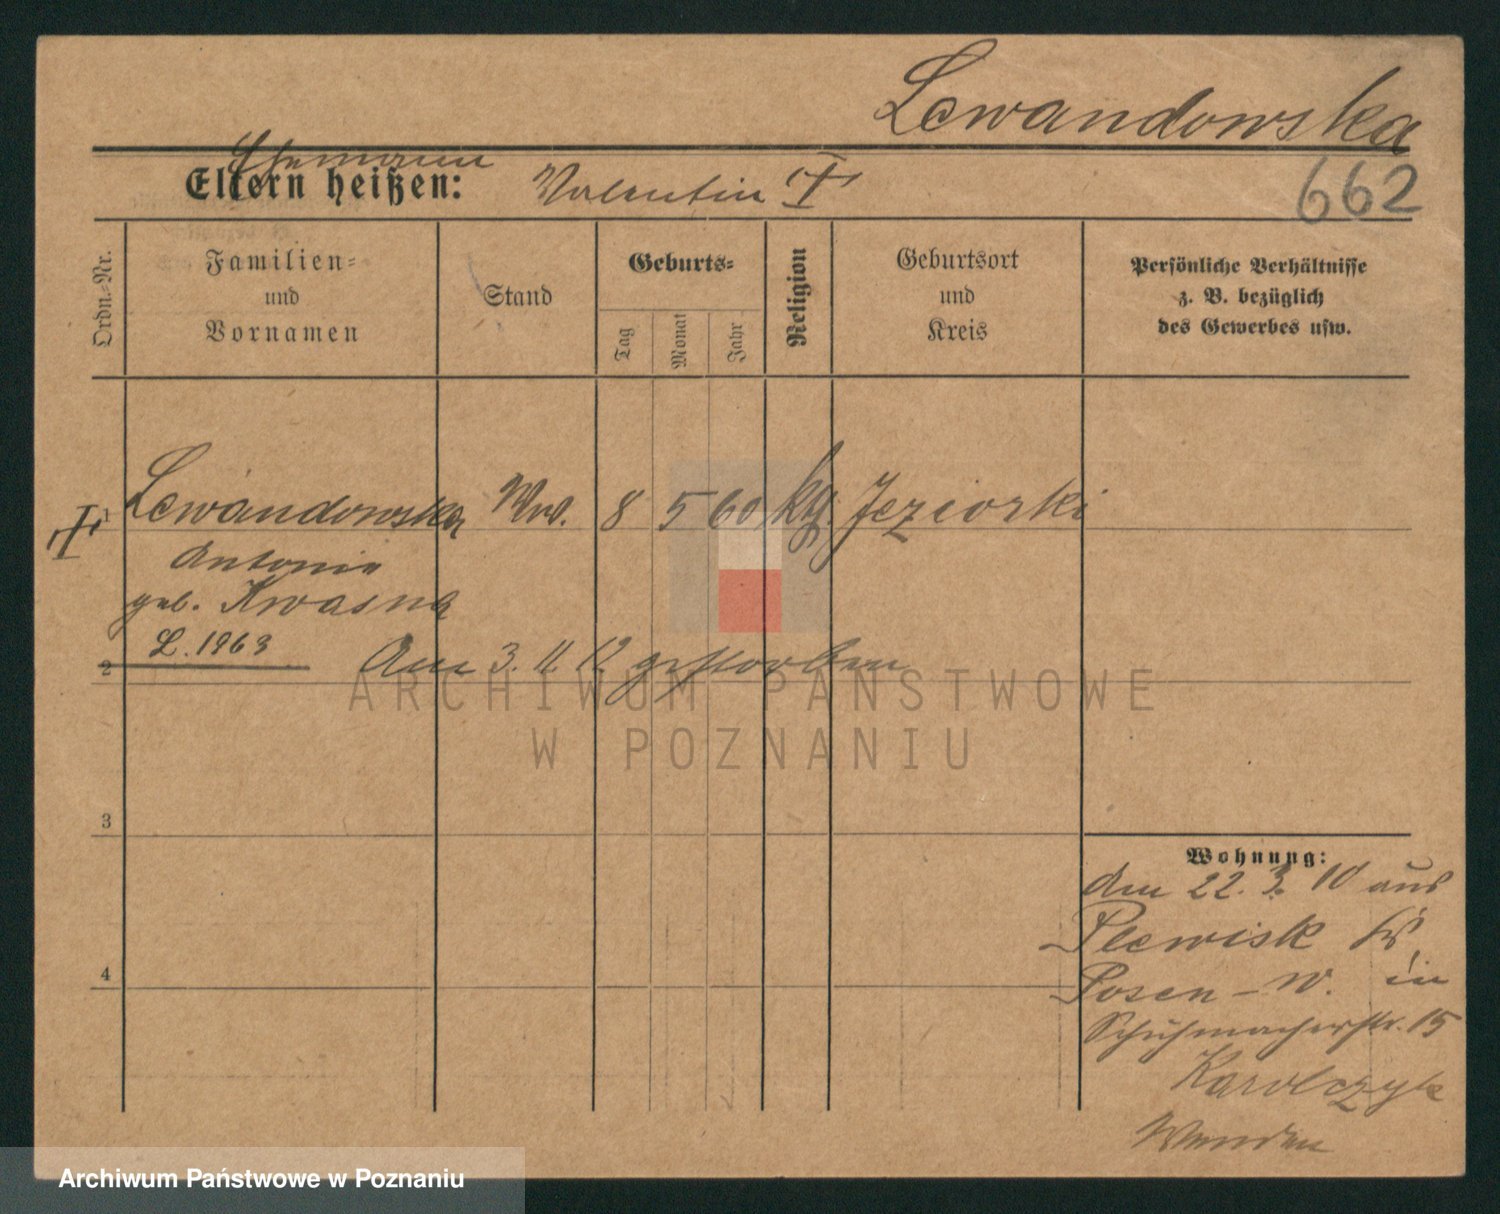 Lewandowska
Ehemann
Eltern heißen: Valentin †
662
Ordn.-Nr.
Familien-
und
Vornamen
Stand
Geburts-
Tag
Monat
Jahr
Religion
Geburtsort
und
Kreis
Persönliche Verhältnisse
z. B. bezüglich
des Gewerbes usw.
† 1 Lewandowska Ww. 8 5 60 kg. Jeziorki
Antonie
geb. Kwasna
L. 1963
2 Am 3. 11. 12 gestorben
ARCHIWUM PAŃSTWOWE
W POZNANIU
3
Wohnung:
Am 22. 3. 10 aus
Plewisk Kr.
4
Posen-W. in
Schuhmacherstr. 15
Karolczyk
Archiwum Państwowe w Poznaniu